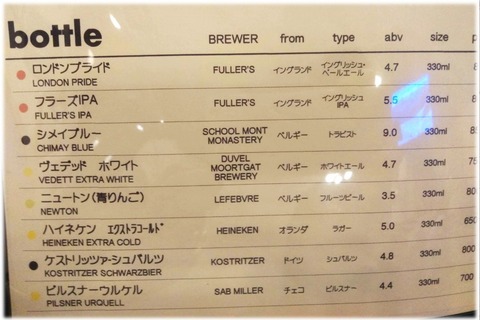 bottle BREWER from type abv size
ロンドンプライド FULLER'S イングランド イングリッシュ・ペールエール 4.7 330ml
LONDON PRIDE
フラーズIPA FULLER'S イングランド イングリッシュ IPA 5.5 330ml
FULLER'S IPA
シメイブルー SCHOOL MONT MONASTERY ベルギー トラピスト 9.0 330ml
CHIMAY BLUE
ヴェデット ホワイト DUVEL MOORTGAT BREWERY ベルギー ホワイトエール 4.7 330ml
VEDETT EXTRA WHITE
ニュートン(青りんご) LEFEBVRE ベルギー フルーツビール 3.5 330ml
NEWTON
ハイネケン エクストラコールド HEINEKEN オランダ ラガー 5.0 330ml
HEINEKEN EXTRA COLD
ケストリッツァ・シュバルツ KOSTRITZER ドイツ シュバルツ 4.8 330ml
KOSTRITZER SCHWARZBIER
ピルスナーウルケル SAB MILLER チェコ ピルスナー 4.4 330ml 700
PILSNER URQUELL